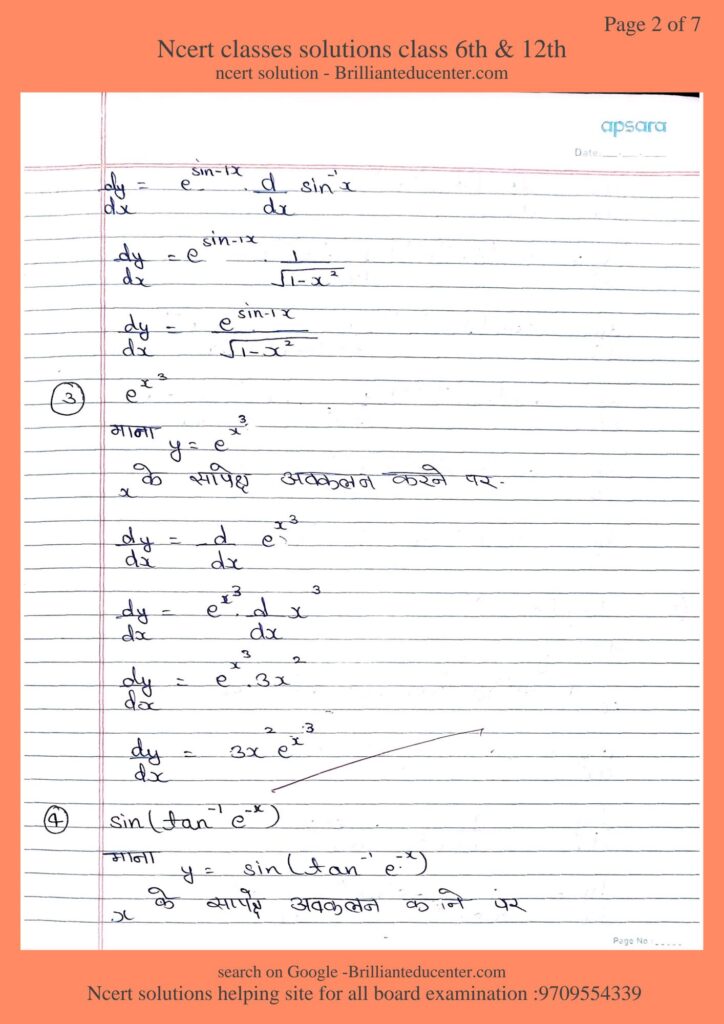 Page 2 of 7
Ncert classes solutions class 6th & 12th
ncert solution - Brillianteducenter.com
apsara
Date
dy/dx = e^sin-1x . d/dx sin⁻¹x
dy/dx = e^sin-1x 1/√1-x²
dy/dx = e^sin-1x/√1-x²
③ e^x³
माना y = e^x³
x के सापेक्ष अवकलन करने पर-
dy/dx = d/dx e^x³
dy/dx = e^x³ . d/dx x³
dy/dx = e^x³ . 3x²
dy/dx = 3x² e^x³
④ sin(tan⁻¹ e^-x)
माना y = sin(tan⁻¹ e^-x)
x के सापेक्ष अवकलन करने पर
Page No:
search on Google -Brillianteducenter.com
Ncert solutions helping site for all board examination :9709554339